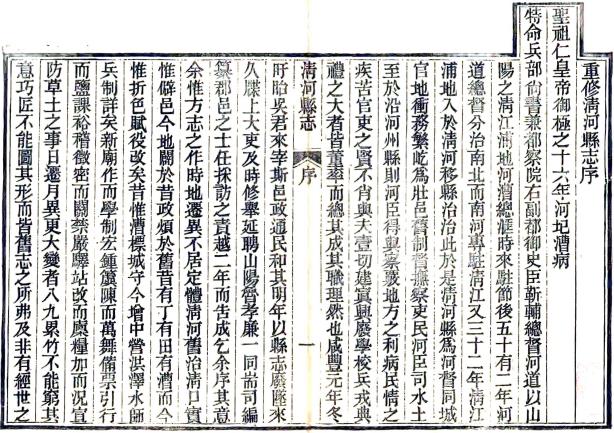 重修淸河縣志序
聖祖仁皇帝御極之十六年河圮漕病
特命兵部尙書兼都察院右副都御史臣靳輔總督河道以山
陽之淸江浦地河漕總滙時來駐節後五十有二年河
道總督分治南北而南河專駐淸江又三十二年淸江
浦地入於淸河移縣治治此於是淸河縣爲河督同城
官地衝務繁屹爲壯邑舊制督撫察吏民河臣司水土
至於沿河州縣則河臣得與察覈地方之利病民情之
疾苦官吏之賢不肖與夫壹切建寘興廢學校兵戎典
禮之大者皆董率而總其成其職理然也咸豐元年冬
淸河縣志 序 一
盱眙吳君來宰斯邑政通民和其明年以縣志廢墜來
久牒上大吏及時修舉延聘山陽魯孝廉一同耑司編
纂郡邑之士任採訪之責越二年而告成乞余序其意
余惟方志之作時地遷異不居定體淸河舊治淸口實
惟僻邑今地闢於昔政煩於舊昔有丁有田有漕而今
惟折色賦役改矣昔惟漕標城守今增中營洪澤水師
兵制詳矣新廟作而學制宏鍾簴陳而萬舞備票引行
而鹽課裕稽徵密而關禁嚴驛站改而廩糧加而況宣
防草土之事日遷月異更大變者八九累竹不能窮其
意巧匠不能圖其形而皆舊志之所弗及非有經世之